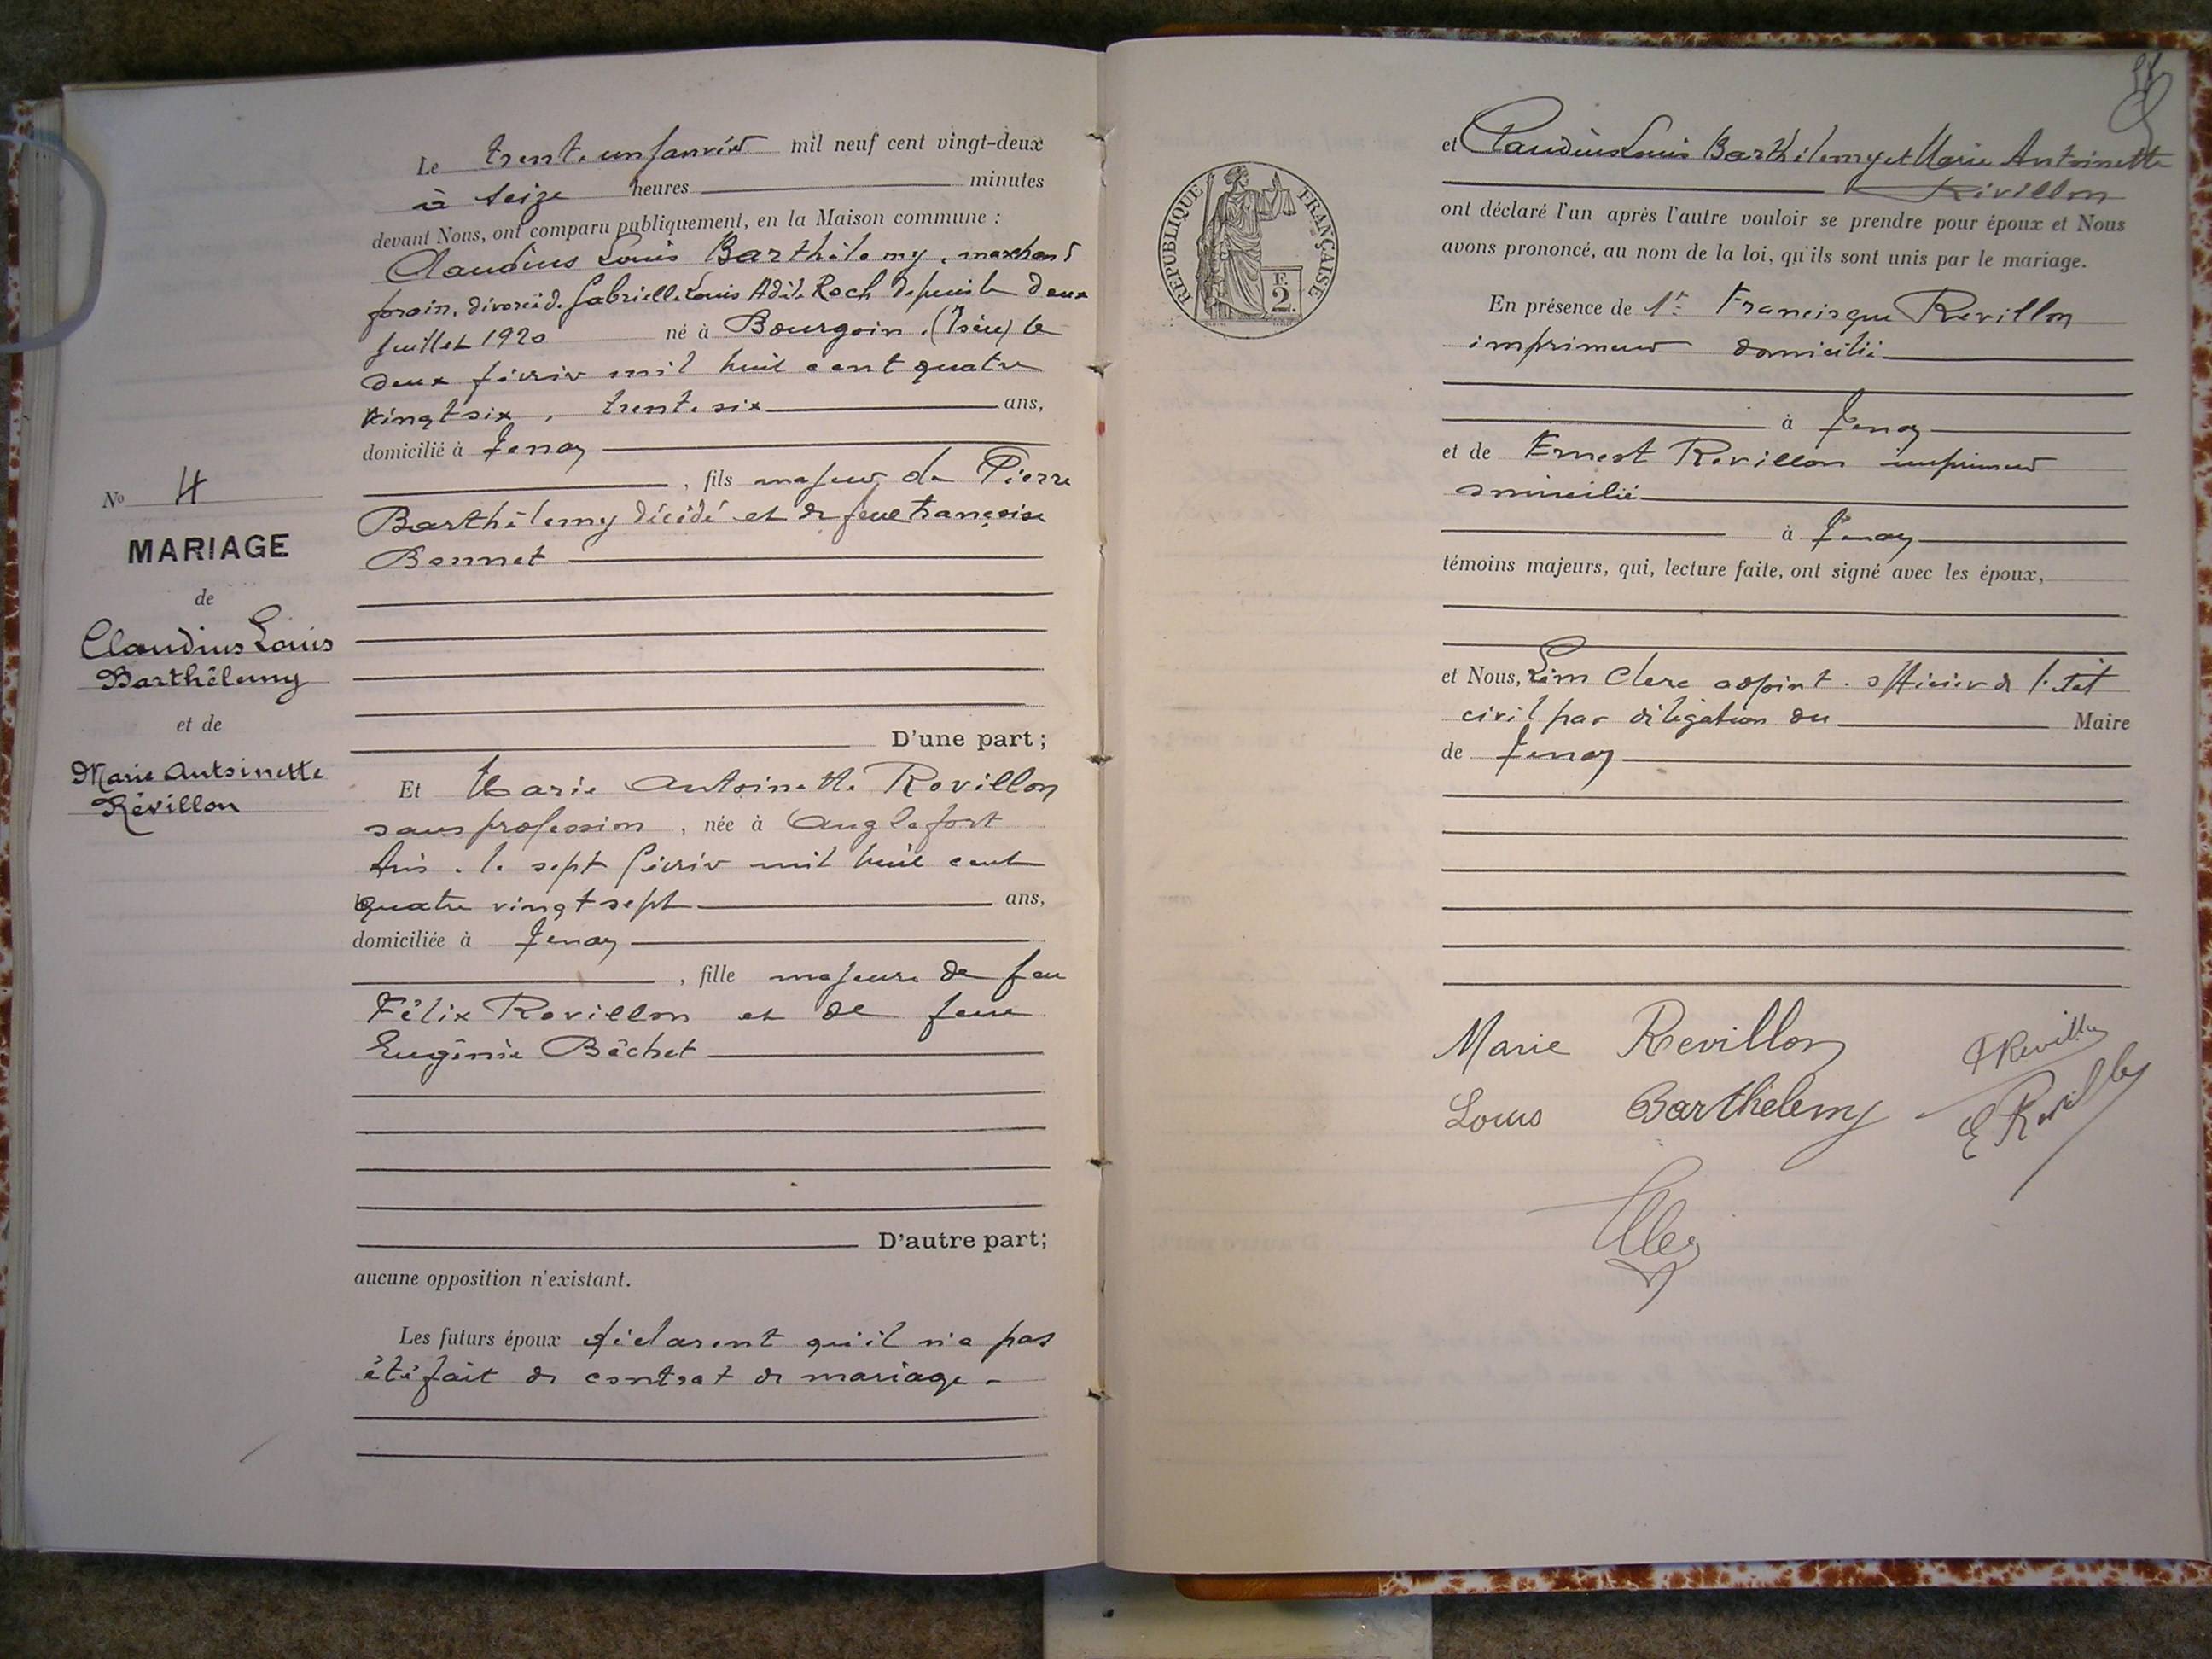 Le trente un Janvier mil neuf cent vingt-deux
à seize heures minutes
devant Nous, ont comparu publiquement, en la Maison commune :
Claudius Louis Barthélemy, marchand
forain, divorcé de Gabrielle Louis Adèle Roch depuis le deux
Juillet 1920 né à Bourgoin (Isère) le
deux février mil huit cent quatre
vingt six, trente six ans,
domicilié à Tenay
, fils majeur de Pierre
Barthélemy décédé et de feue Françoise
Bonnet
D'une part ;
Nº 4
MARIAGE
de
Claudius Louis
Barthélemy
et de
Marie Antoinette
Révillon
Et Marie Antoinette Revillon
sans profession, née à Anglefort
Ain. le sept février mil huit cent
quatre vingt sept ans,
domiciliée à Tenay
, fille majeure de feu
Félix Revillon et de feue
Eugénie Béchet
D'autre part;
aucune opposition n'existant.
Les futurs époux déclarent qu'il n'a pas
été fait de contrat de mariage.
RÉPUBLIQUE FRANÇAISE
F.
2.
et Claudius Louis Barthélemy et Marie Antoinette
Révillon
ont déclaré l'un après l'autre vouloir se prendre pour époux et Nous
avons prononcé, au nom de la loi, qu'ils sont unis par le mariage.
En présence de 1er Francisque Revillon
imprimeur domicilié
à Tenay
et de Ernest Revillon imprimeur
domicilié
à Tenay
témoins majeurs, qui, lecture faite, ont signé avec les époux,
et Nous, Clerc adjoint. officier de l'état
civil par délégation du Maire
de Tenay
Marie Revillon
F Revillon
Louis Barthélemy
E Revillon